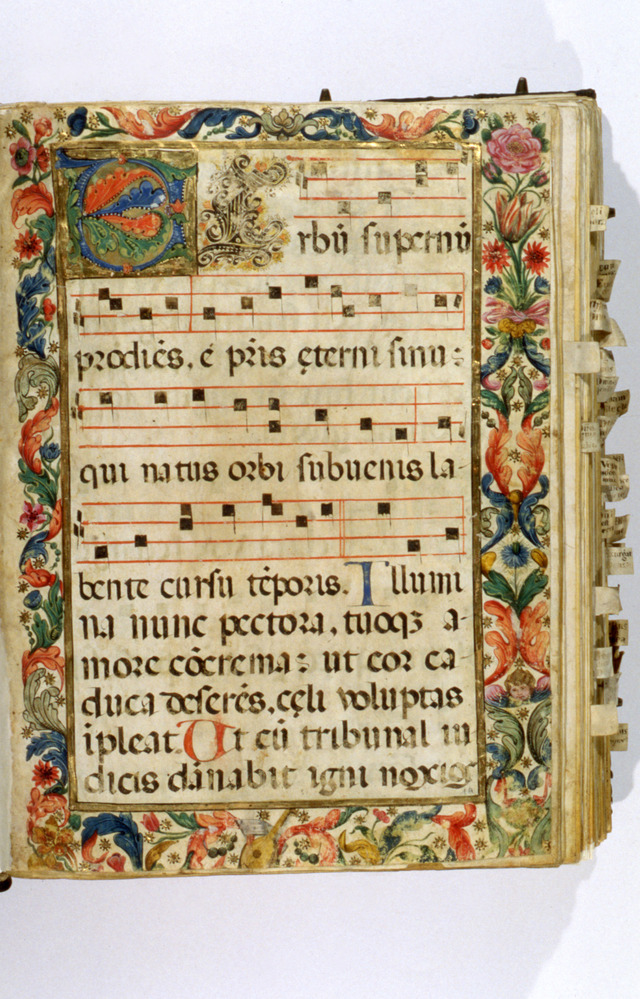 VErbū supernū
prodiēs, é pr̄is ęterni sinu:
qui natus orbi subuenis la-
bente cursu tēporis. Illumi
na nunc pectora, tuoqꝫ a-
more cōcrema: ut cor ca
duca deserēs, cęli voluptas
īpleat. Ut cū tribunal iu
dicis dānabit igni noxios